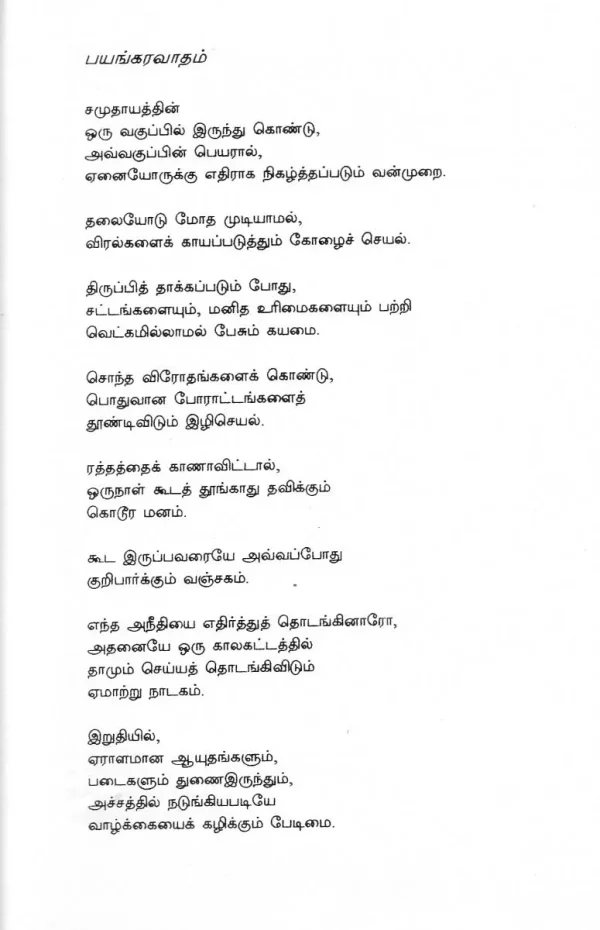 பயங்கரவாதம்
சமுதாயத்தின்
ஒரு வகுப்பில் இருந்து கொண்டு,
அவ்வகுப்பின் பெயரால்,
ஏனையோருக்கு எதிராக நிகழ்த்தப்படும் வன்முறை.
தலையோடு மோத முடியாமல்,
விரல்களைக் காயப்படுத்தும் கோழைச் செயல்.
திருப்பித் தாக்கப்படும் போது,
சட்டங்களையும், மனித உரிமைகளையும் பற்றி
வெட்கமில்லாமல் பேசும் கயமை.
சொந்த விரோதங்களைக் கொண்டு,
பொதுவான போராட்டங்களைத்
தூண்டிவிடும் இழிசெயல்.
ரத்தத்தைக் காணாவிட்டால்,
ஒருநாள் கூடத் தூங்காது தவிக்கும்
கொடூர மனம்.
கூட இருப்பவரையே அவ்வப்போது
குறிபார்க்கும் வஞ்சகம்.
எந்த அநீதியை எதிர்த்துத் தொடங்கினாரோ,
அதனையே ஒரு காலகட்டத்தில்
தாமும் செய்யத் தொடங்கிவிடும்
ஏமாற்று நாடகம்.
இறுதியில்,
ஏராளமான ஆயுதங்களும்,
படைகளும் துணைஇருந்தும்,
அச்சத்தில் நடுங்கியபடியே
வாழ்க்கையைக் கழிக்கும் பேடிமை.